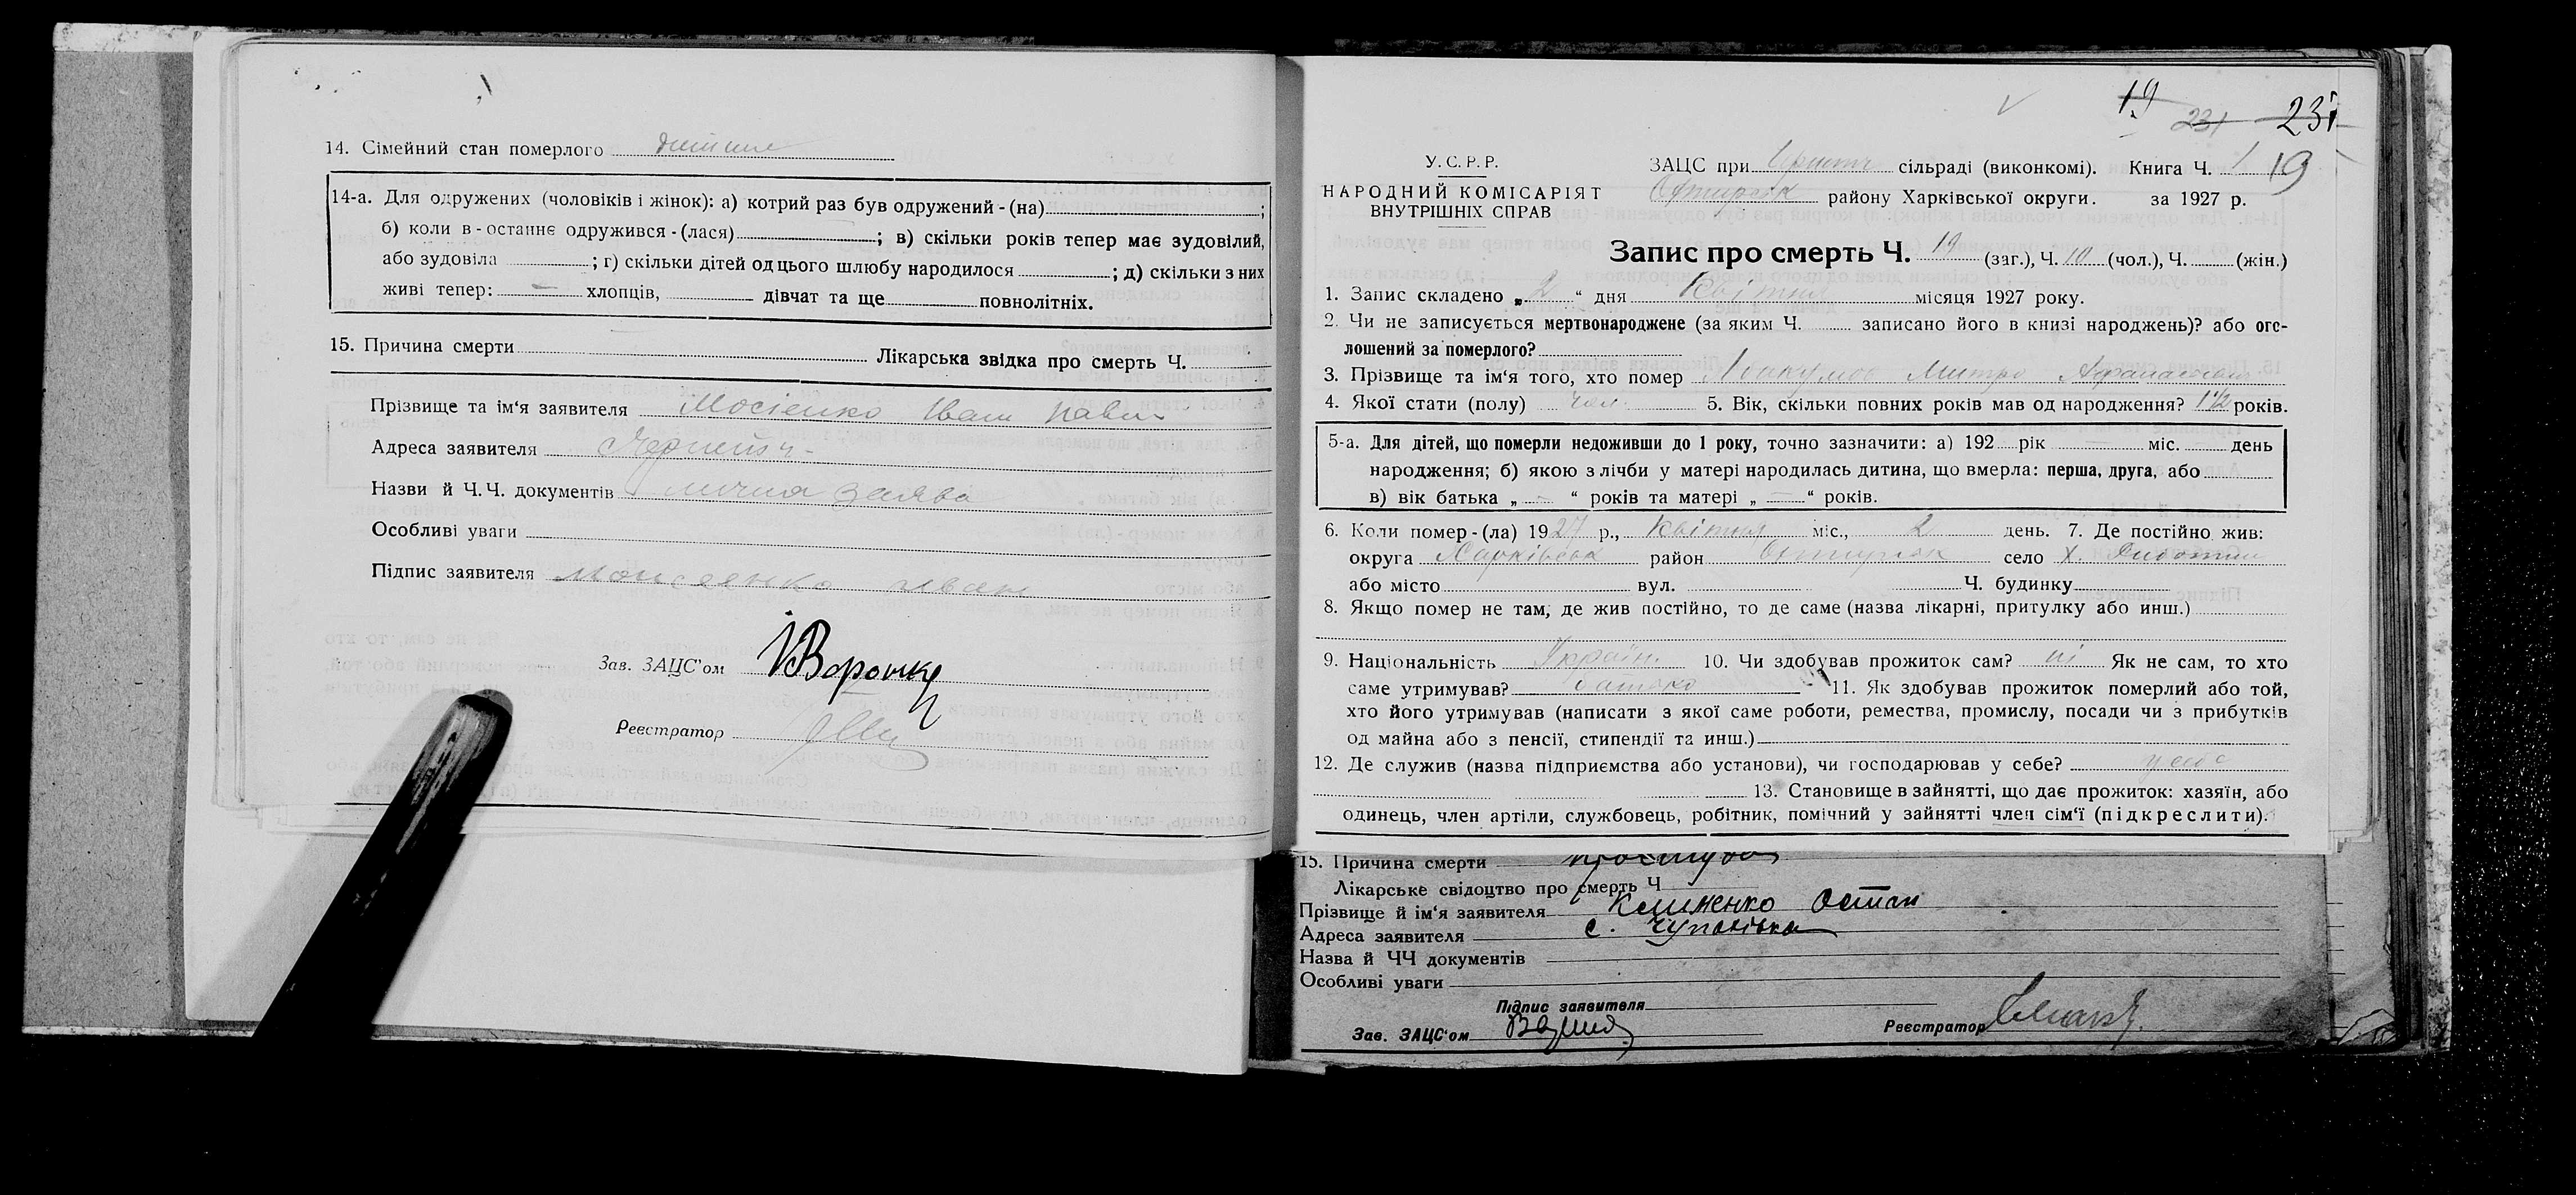 14. Сімейний стан померлого
14-а. Для одружених (чоловіків і жінок): а) котрий раз був одружений - (на) ;
б) коли в - останнє одружився - (лася) ; в) скільки років тепер має зудовілий,
або зудовіла ; г) скільки дітей од цього шлюбу народилося ; д) скільки з них
живі тепер: — хлопців, дівчат та ще повнолітніх.
15. Причина смерти Лікарська звідка про смерть Ч.
Прізвище та ім'я заявителя Мосіенко Іван Павл
Адреса заявителя
Назви й Ч.Ч. документів лична заява
Особливі уваги
Підпис заявителя Моисеенко иван
Зав. ЗАЦС'ом
Реєстратор
19 231 231
У. С. Р. Р.
НАРОДНИЙ КОМІСАРІЯТ
ВНУТРІШНІХ СПРАВ
ЗАЦС при сільраді (виконкомі). Книга Ч. 1 19
району Харківської округи. за 1927 р.
Запис про смерть Ч. 19 (заг.), Ч. 10 (чол.), Ч. (жін.)
1. Запис складено „ 2 “ дня Квітня місяця 1927 року.
2. Чи не записується мертвонароджене (за яким Ч. записано його в книзі народжень)? або ого-
лошений за померлого?
3. Прізвище та ім'я того, хто помер Митро
4. Якої стати (полу) чол. 5. Вік, скільки повних років мав од народження? 1½ років.
5-а. Для дітей, що померли недоживши до 1 року, точно зазначити: а) 192 рік — міс. день
народження; б) якою з лічби у матері народилась дитина, що вмерла: перша, друга, або
в) вік батька „ — “ років та матері „ — “ років.
6. Коли помер - (ла) 1927 р., Квітня міс., 2 день. 7. Де постійно жив:
округа Харківськ район село Х.
або місто вул. Ч. будинку
8. Якщо помер не там, де жив постійно, то де саме (назва лікарні, притулку або инш.)
9. Національність Україн. 10. Чи здобував прожиток сам? ні Як не сам, то хто
саме утримував? батько 11. Як здобував прожиток померлий або той,
хто його утримував (написати з якої саме роботи, ремества, промислу, посади чи з прибутків
од майна або з пенсії, стипендії та инш.)
12. Де служив (назва підприємства або установи), чи господарював у себе?
13. Становище в зайнятті, що дає прожиток: хазяїн, або
одинець, член артіли, службовець, робітник, помічний у зайнятті член сім'ї (підкреслити).
15. Причина смерти
Лікарське свідоцтво про смерть Ч
Прізвище й ім'я заявителя Клименко Остап
Адреса заявителя с. Чупахівка
Назва й ЧЧ документів
Особливі уваги
Підпис заявителя
Зав. ЗАЦС'ом Реєстратор